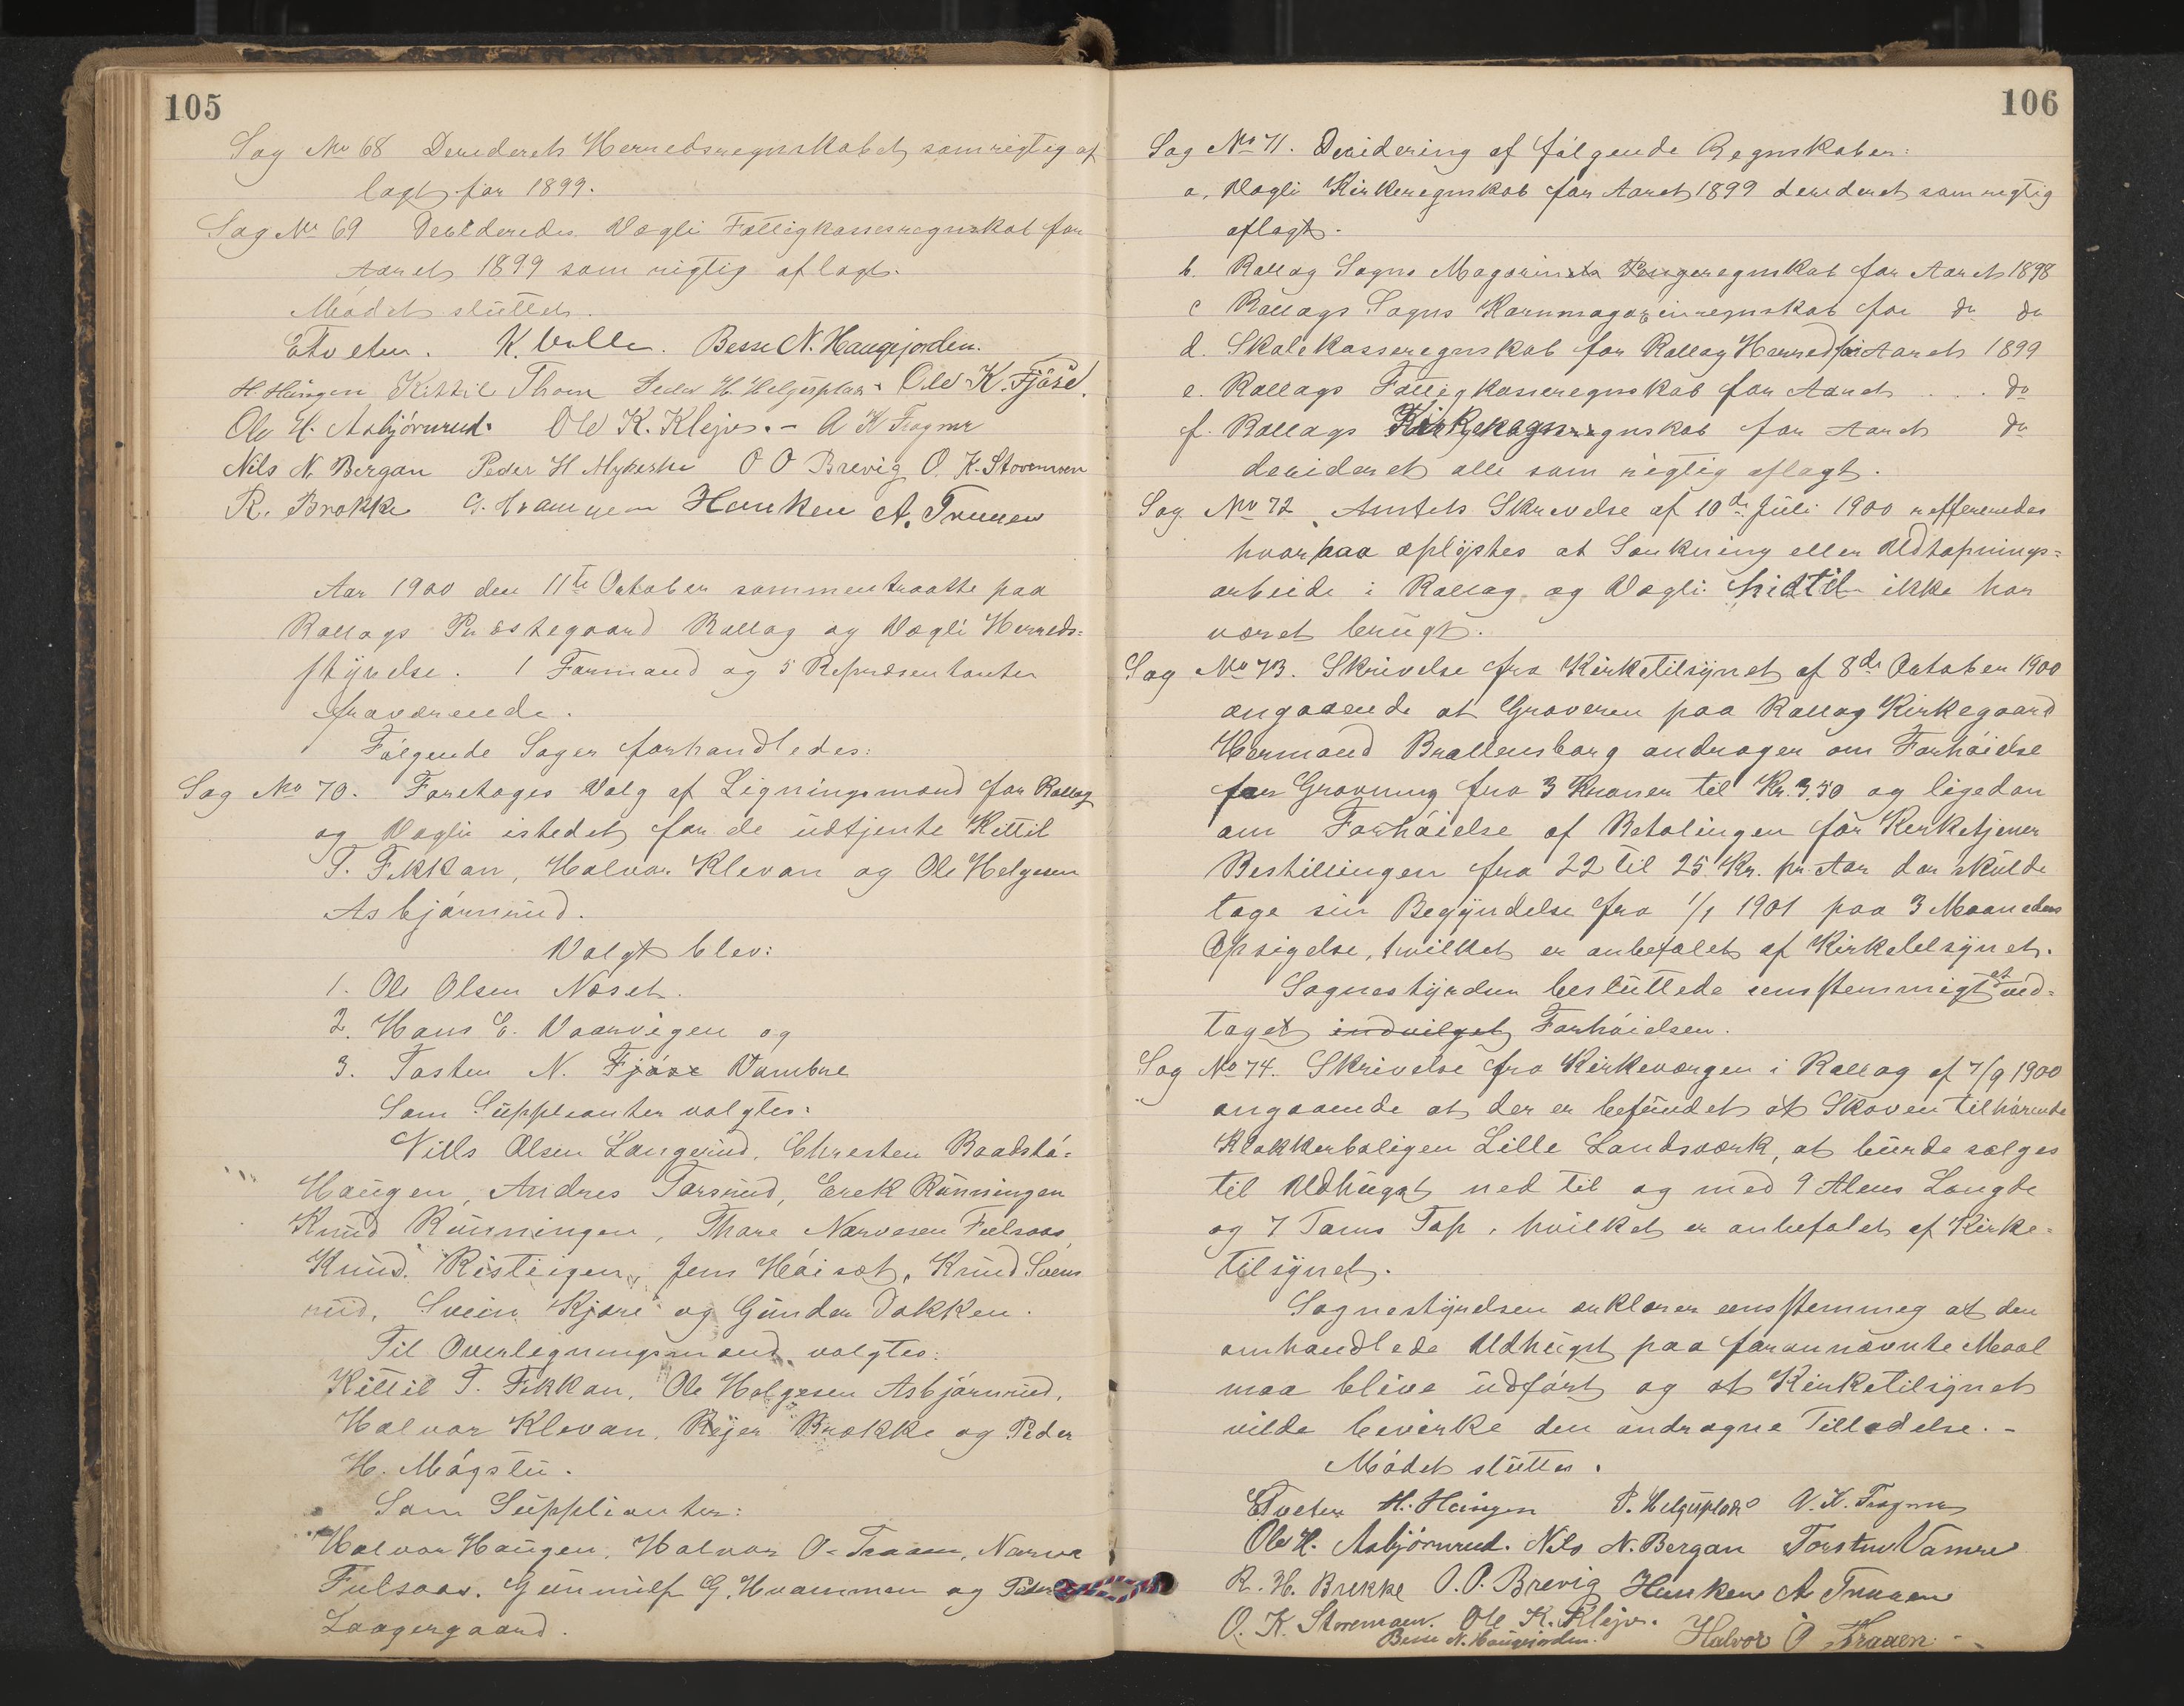 105
Sag No 68 Desideret Herredsregnskabet som rigtig af
lagt for 1899.
Sag No 69 Desideredes Vægli Fattigkasseregnskab for
Aaret 1899 som rigtig aflagt.
Mødet sluttet.
ETveten. K. Bessе N. Haugejorden.
H. Haugen Kittil Thom Peder H. Helgesplads Ole K. Fjøse.
Ole H. Asbjörnrud. Ole K. Klejv. – A K Fragnar
Nils N. Bergan Peder H O O Brevig O. K. Storemoen
R. Brøkke G. Hvammen Hanken A. Truuen
Aar 1900 den 11te October sammentraatte paa
Rollags Præstegaard Rollag og Vægli Herreds=
styrelse. 1 Formand og 5 Repræsentanter
fraværende.
Følgende Sager forhandledes:
Sag No 70. Foretoges Valg af Ligningsmænd for Rollag
og Vægli istedet for de udtjente Kittil
T. Fekkan, Halvor Klevan og Ole Helgesen
Asbjørnrud.
Valgt blev:
1. Ole Olsen Næset.
2. Hans E. Vaarvigen og
3. Tosten N. Fjøse Vambre
Som Supplianter valgtes:
Nills Olsen Langerud, Christen Baadstö=
Haugen, Andres Torsrud, Erek Rünningen
Knud Rünningen, Thore Narvesen Fulsaas,
Knud Risteigen, Jens Høisæt, Knud Svens
rud, Svein Kjøre og Gunder Dokken.
Til Overlegningsmænd valgtes:
Kittil T. Fekkan, Ole Helgesen Asbjørnrud,
Halvor Klevan, Rejer Brøkke og Peder
H. Mögstu.
Som Supplianter:
Halvor Haugen, Halvor O. Traaen, Narve
Fulsaas, Gunnulf G. Hvammen og Peder
Laagergaard.
106
Sag No 71. Desidering af følgende Regnskaber:
a. Vægli Kirkeregnskab for Aaret 1899 desideret som rigtig
aflagt.
b. Rollag Sogns Magasins Pengeregnskab for Aaret 1898
c Rollags Sogns Kornmagazinregnskab for do do
d. Skolekasseregnskab for Rollag Herred for Aaret 1899
e. Rollags Fattigkasseregnskab for Aaret . . . do
f. Rollags Kirkeregnskab for Aaret do
desideret alle som rigtig aflagt.
Sag No 72 Amtets Skrivelse af 10de Juli 1900 refferenedes
hvorpaa oplystes at Sænkning eller Udtapnings=
arbeide i Rollag og Vægli hidtil ikke har
været brugt.
Sag No 73. Skrivelse fra Kirketilsynet af 8de October 1900
angaaende at Graveren paa Rollag Kirkegaard
Hermand Brallensborg andrager om Forhøielse
for Gravning fra 3 Kroner til Kr. 3,50 og ligedan
om Forhøielse af Betalingen for Kerketjener
Bestillingen fra 22 til 25 Kr. pr. Aar der skulde
tage sin Begyndelse fra 1/1 1901 paa 3 Maaneders
Opsigelse, hvilket er anbefalet af Kirketilsynet.
Sognestyrelsen besluttede eensstemmigt at ved=
taget indvilget Forhøielsen.
Sag No 74. Skrivelse fra Kirkeværgen i Rollag af 7/9 1900
angaaende at der er befundet at Skoven tilhørende
Klokkerboligen Lille Landsværk, at burde sælges
til Udhugst ned til og med 9 Alens Længde
og 7 Toms Top, hvilket er anbefalet af Kirke=
tilsynet.
Sognestyrelsen erklærer eensstemmeg at den
omhandlede Udhugst paa forannævnte Maal
maa blive udført og at Kirketilsynet
vilde bevirke den andragne Tilladelse. –
Mødet sluttes.
ETveten H. Haugen P. Helgesplads A. K. Fragnar
Ole H. Asbjörnrud. Nils N. Bergan Torsten Vamre
R. H. Brekke O. O. Brevig Hanken A Truuen
O. K. Storemoen. Ole K. Klejv.
Besse N. Haugejorden. Halvor O Traaen.